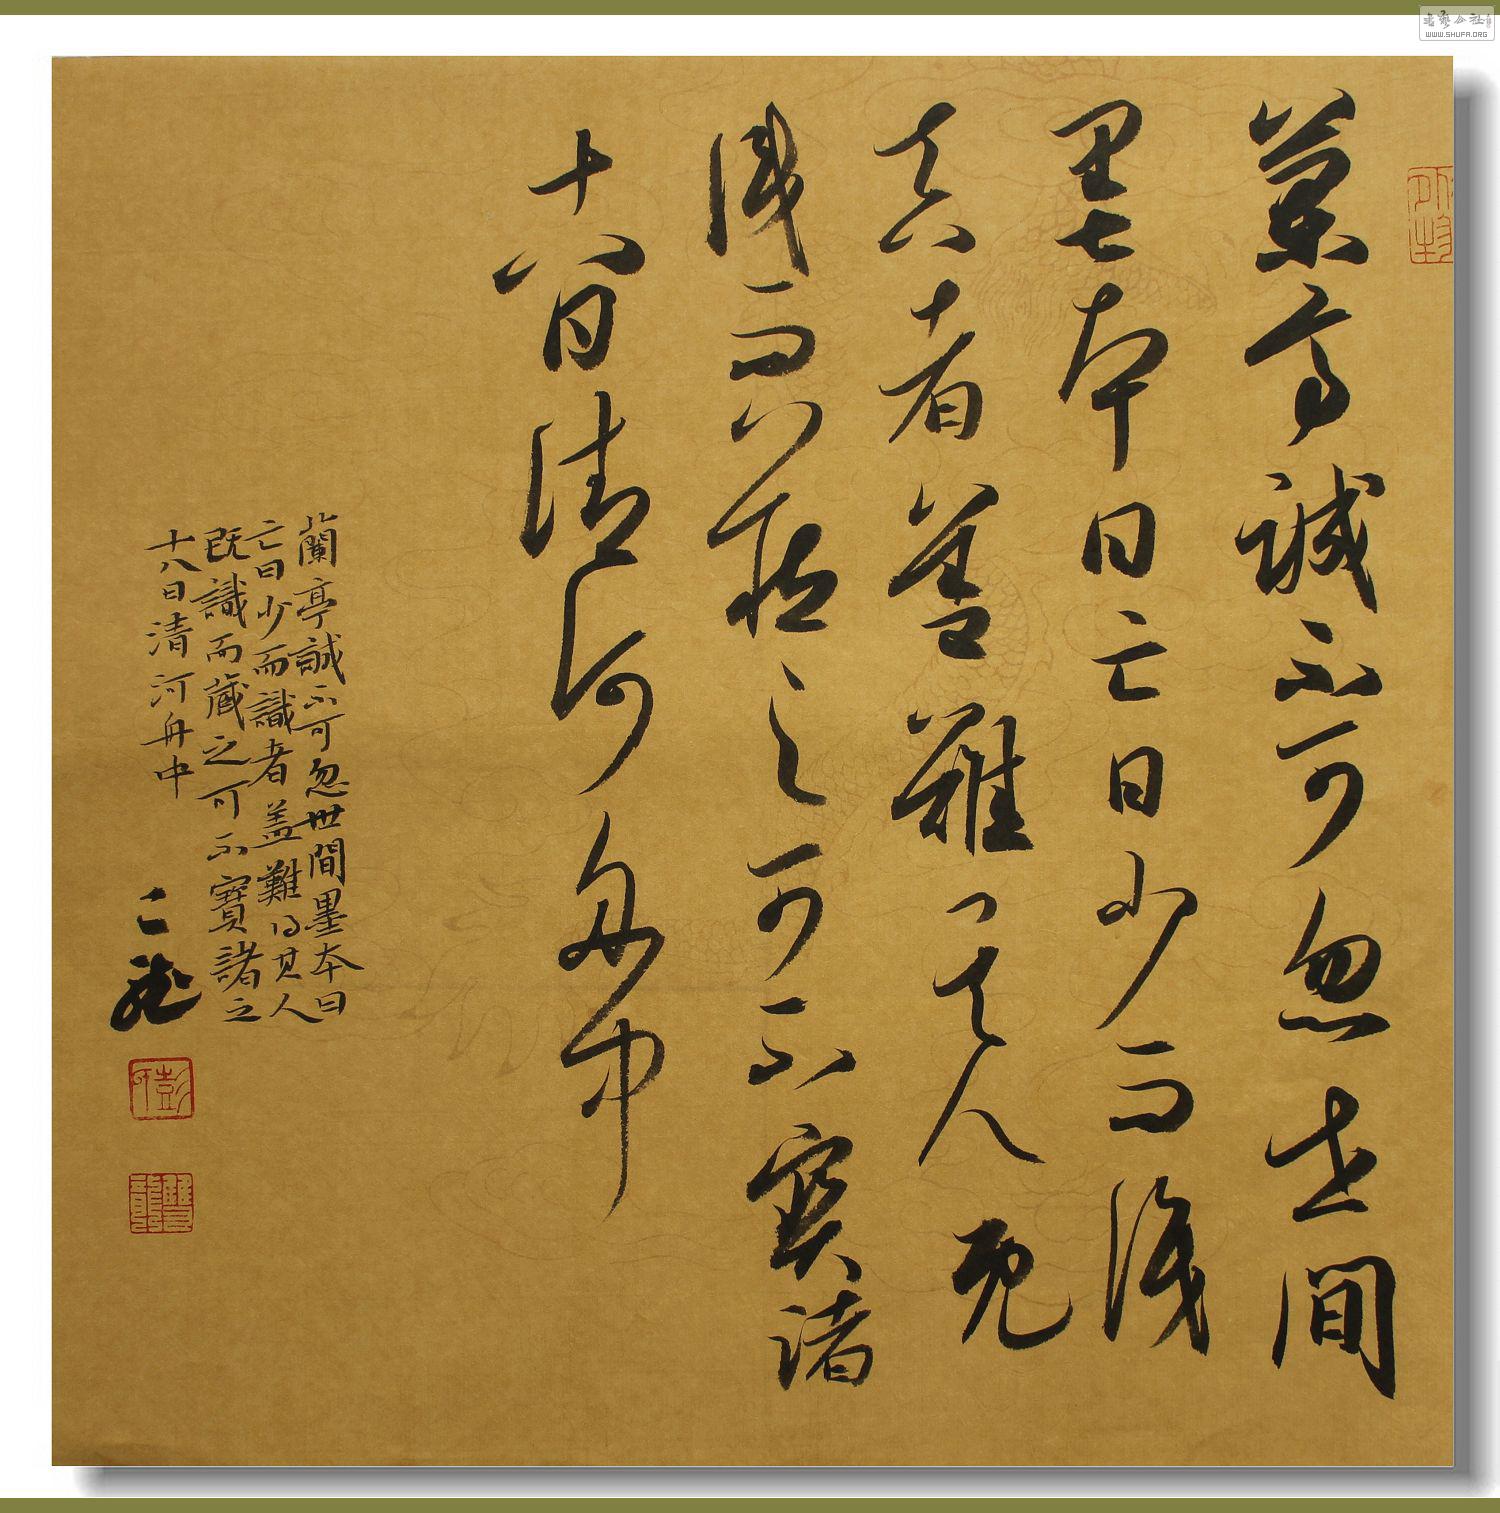 蘭亭誠不可忽世間
墨本日亡日少而識
真者盖難得其人既
識而藏之可不寶諸
十八日清河舟中
蘭亭誠不可忽世間墨本日
亡日少而識者盖難得其人
既識而藏之可不寶諸之
十八日清河舟中
二龍
彭
雙龍
書藝公社
WWW.SHUFA.ORG